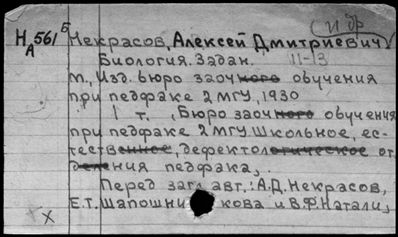 и др
Н 561 Б Некрасов, Алексей Дмитриевич
А
Биология. Задан. 11-13
М, Изд. бюро заочного обучения
при педфаке 2 МГУ, 1930
1 т. , Бюро заочного обучения
при педфаке 2 МГУ. Школьное, ес-
тественное, дефектологическое от
деления педфака,.
Перед загл. авт.: А.Д. Некрасов,
Е.Т. Шапошникова и В.Ф. Натали,
X